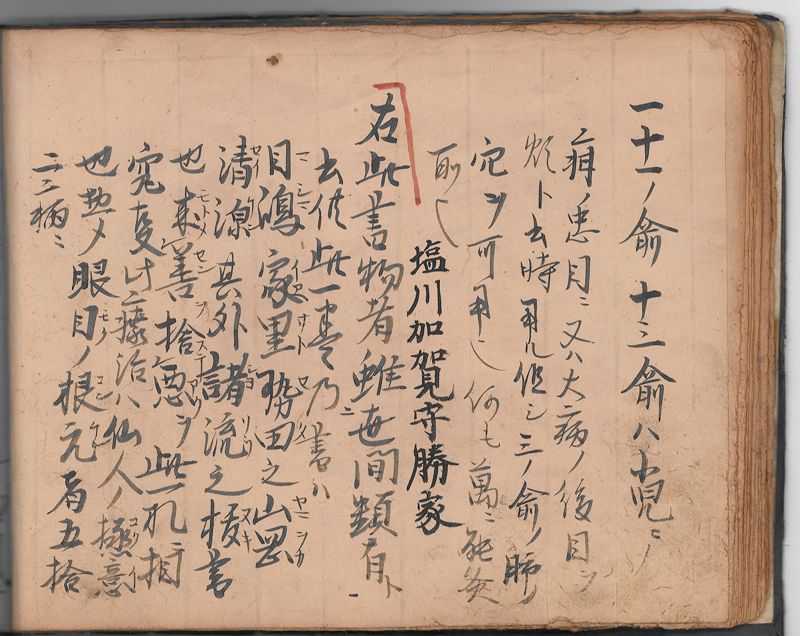 一十一ノ兪十三兪ハ小児ニノ
疳ノ患目ニ又ハ大病ノ後目ヲ
煩ト云時用ル但シ三ノ兪ノ肺ノ
穴ヲ可用也何モ萬ニ能灸
塩川加賀守勝家
右此書物者雖世間類有ト
云伝此一巻乃書ハ
目嶋家里勢田之山岡
清涼其外諸流之抜書
也求善捨悪ヲ此孔ニ相
究重タ療治ハ仙人ノ極意
也熱〆眼目ノ根元肩五拾
二ニ病ニ